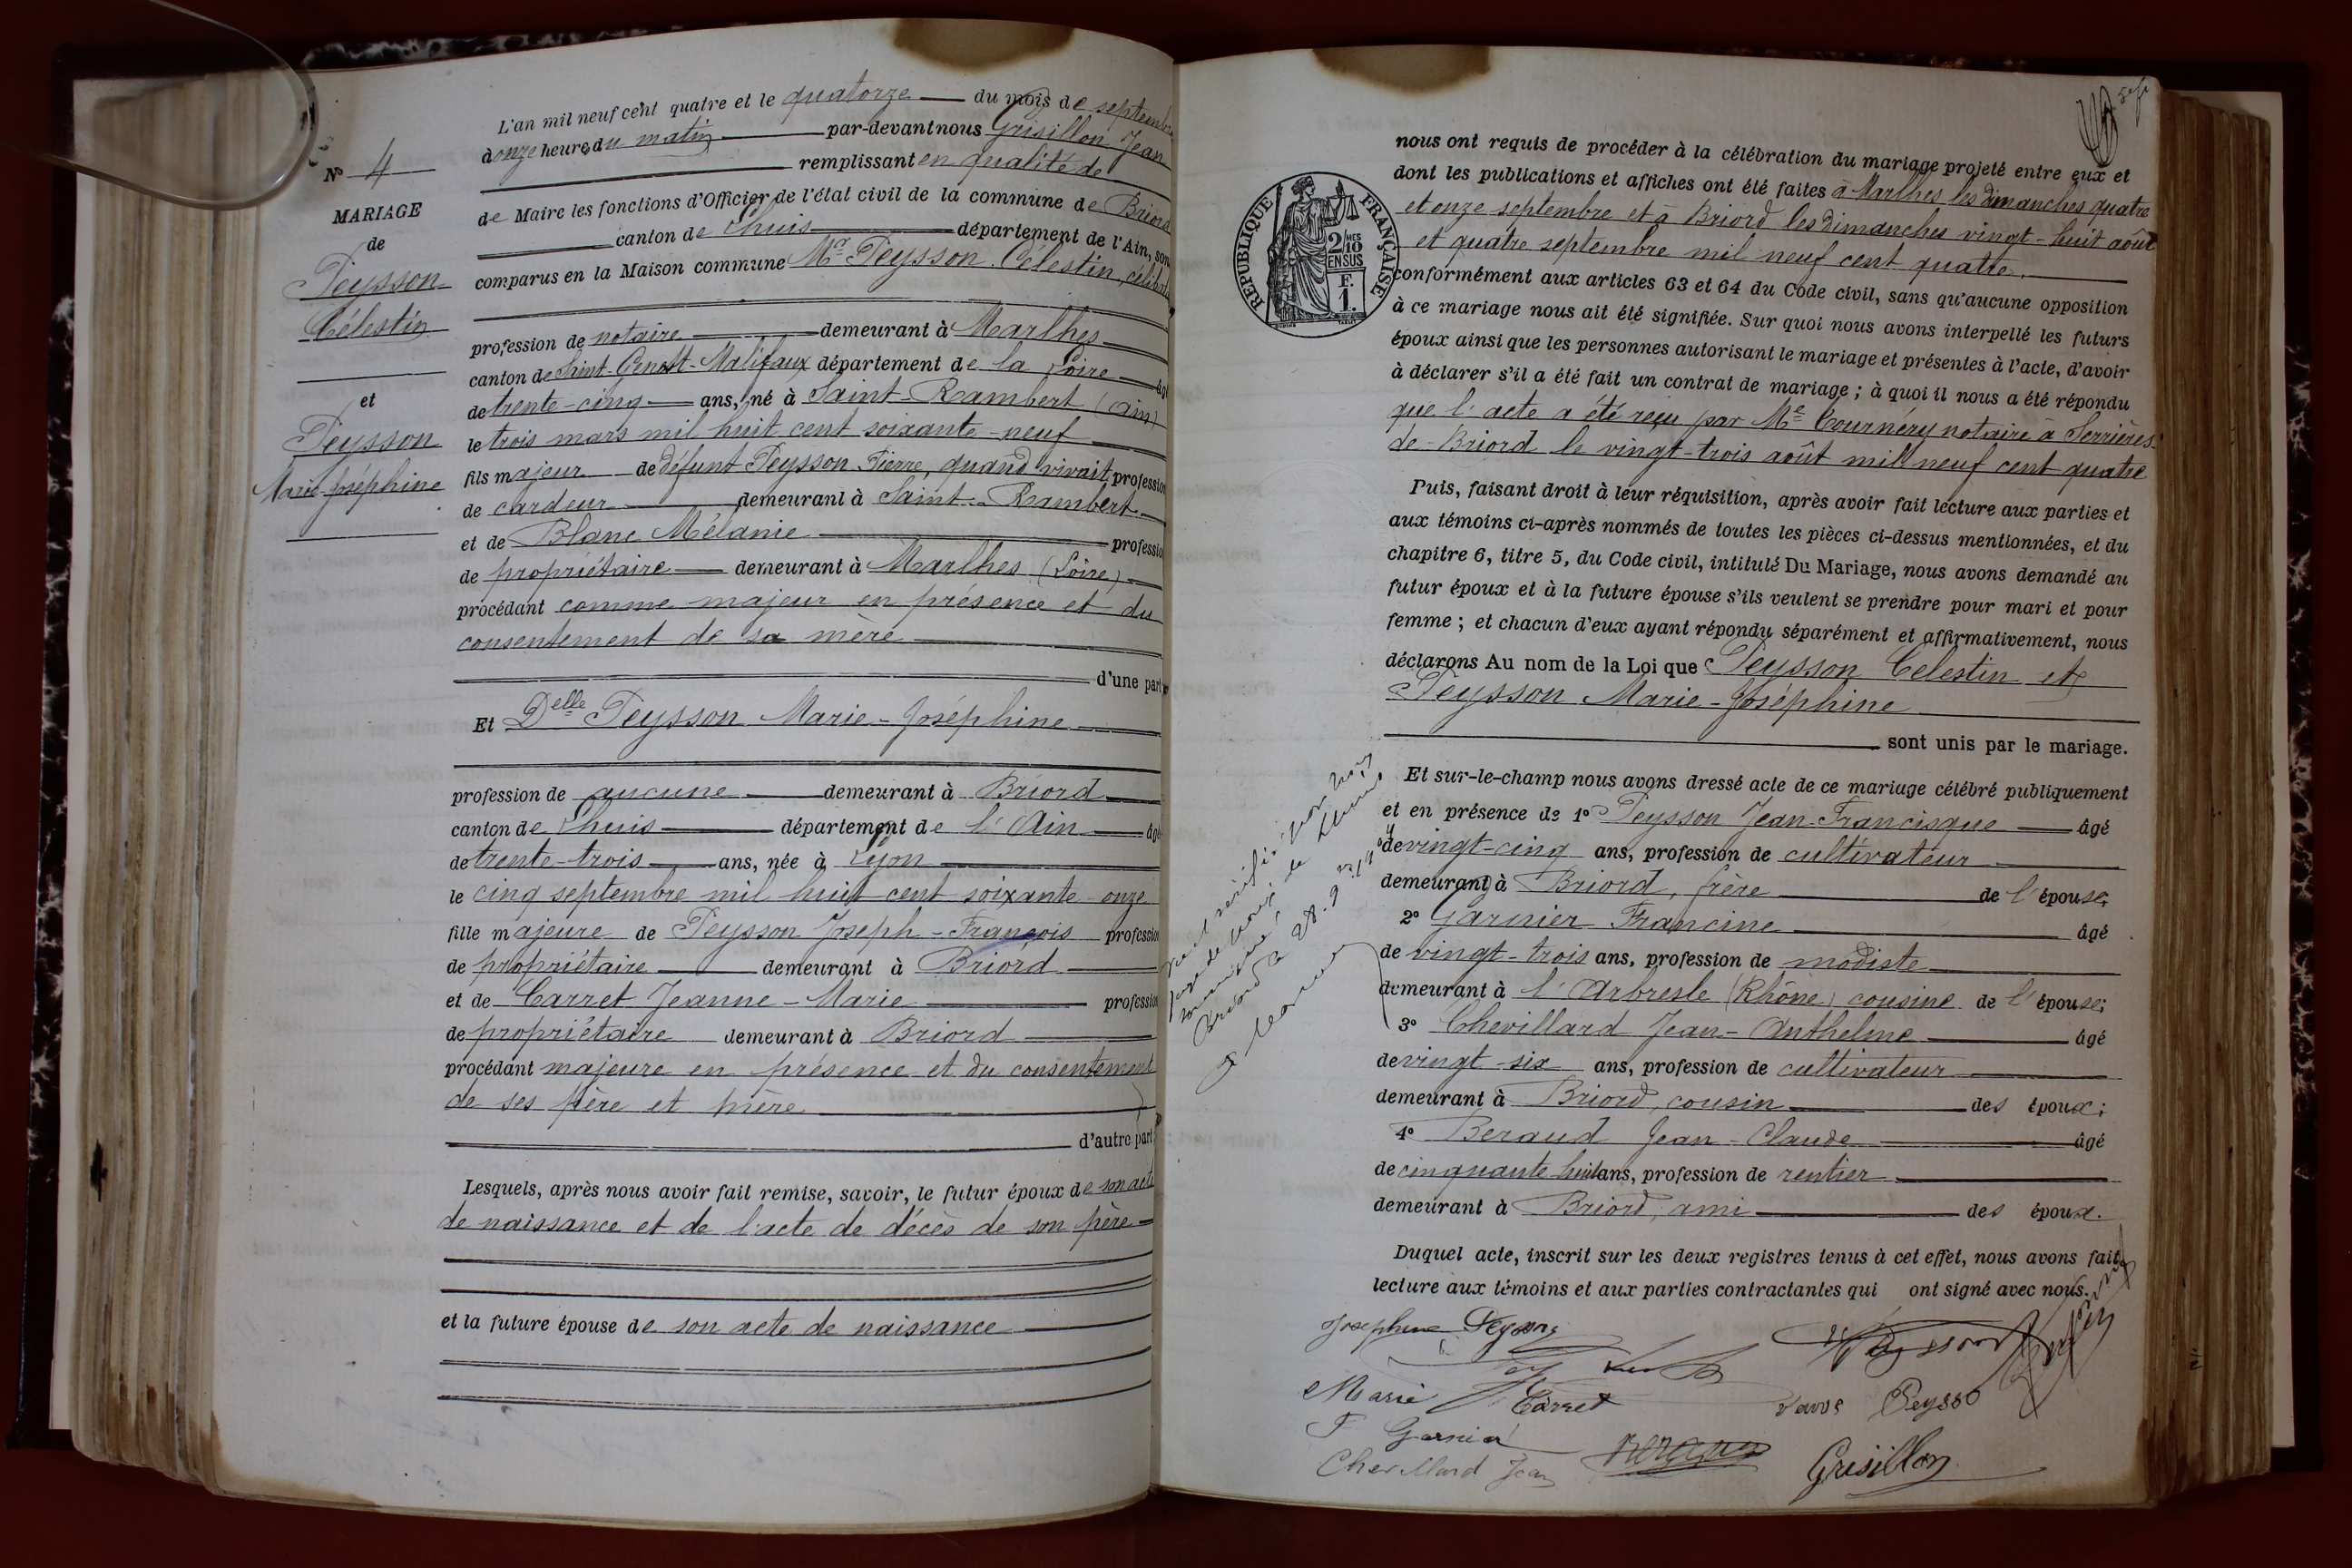 N° 4
MARIAGE
de
Peysson
Célestin
et
Peysson
Marie-Joséphine
L'an mil neuf cent quatre et le quatorze du mois de septembre
à onze heures du matin par-devant nous Grisillon Jean
remplissant en qualité de
de Maire les fonctions d'Officier de l'état civil de la commune de Briord
canton de Lhuis département de l'Ain, son
comparus en la Maison commune Mr Peysson Célestin, céliba
profession de notaire demeurant à Marlhes
canton de Saint-Genest-Malifaux département de la Loire âgé
de trente-cinq ans, né à Saint-Rambert (Ain)
le trois mars mil huit cent soixante-neuf
fils majeur de défunt Peysson Pierre, quand vivait, profession
de cardeur demeurant à Saint-Rambert
et de Blanc Mélanie professio
de propriétaire demeurant à Marlhes (Loire)
procédant comme majeur en présence et du
consentement de sa mère
d'une part
Et Delle Peysson Marie-Joséphine
profession de aucune demeurant à Briord
canton de Lhuis département de l'Ain âgé
de trente-trois ans, née à Lyon
le cinq septembre mil huit cent soixante-onze
fille majeure de Peysson Joseph-François profession
de propriétaire demeurant à Briord
et de Carret Jeanne-Marie profession
de propriétaire demeurant à Briord
procédant majeure en présence et du consentement
de ses père et mère
d'autre part;
Lesquels, après nous avoir fait remise, savoir, le futur époux de son acte
de naissance et de l'acte de décès de son père
et la future épouse de son acte de naissance
nous ont requis de procéder à la célébration du mariage projeté entre eux et
dont les publications et affiches ont été faites à Marlhes les dimanches quatre
et onze septembre et à Briord les dimanches vingt-huit août
et quatre septembre mil neuf cent quatre.
RÉPUBLIQUE FRANÇAISE
2/10 MES
EN SUS
F.
1.
conformément aux articles 63 et 64 du Code civil, sans qu'aucune opposition
à ce mariage nous ait été signifiée. Sur quoi nous avons interpellé les futurs
époux ainsi que les personnes autorisant le mariage et présentes à l'acte, d'avoir
à déclarer s'il a été fait un contrat de mariage ; à quoi il nous a été répondu
que l'acte a été reçu par Me Cournéry notaire à Serrières-
de-Briord le vingt-trois août mil neuf cent quatre
Puis, faisant droit à leur réquisition, après avoir fait lecture aux parties et
aux témoins ci-après nommés de toutes les pièces ci-dessus mentionnées, et du
chapitre 6, titre 5, du Code civil, intitulé Du Mariage, nous avons demandé au
futur époux et à la future épouse s'ils veulent se prendre pour mari et pour
femme ; et chacun d'eux ayant répondu séparément et affirmativement, nous
déclarons Au nom de la Loi que Peysson Celestin et
Peysson Marie-Joséphine
sont unis par le mariage.
Et sur-le-champ nous avons dressé acte de ce mariage célébré publiquement
et en présence de 1° Peysson Jean-Francisque âgé
de vingt-cinq ans, profession de cultivateur
demeurant à Briord, frère de l'épouse;
2° Garnier Francine âgé
de vingt-trois ans, profession de modiste
demeurant à l'Arbresle (Rhône) cousine de l'épouse;
3° Chevillard Jean-Anthelme âgé
de vingt-six ans, profession de cultivateur
demeurant à Briord, cousin des époux;
4° Beraud Jean-Claude âgé
de cinquante huit ans, profession de rentier
demeurant à Briord, ami des époux.
Duquel acte, inscrit sur les deux registres tenus à cet effet, nous avons fait
lecture aux témoins et aux parties contractantes qui ont signé avec nous.
Josephine Peysson
Peysson
Marie Carret
Peysso
F Garnier
Chevillard Jean
Grisillon